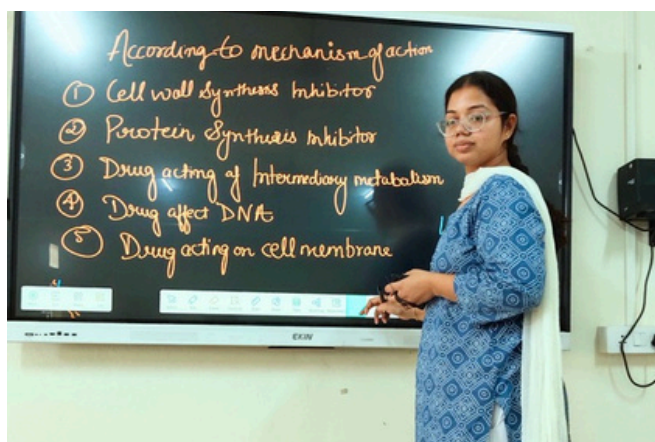 According to mechanism of action
① Cell wall Synthesis Inhibitor
② Protein Synthesis Inhibitor
③ Drug acting of Intermediary metabolism
④ Drug affect DNA
⑤ Drug acting on cell membrane